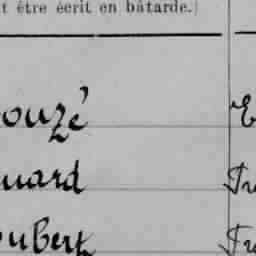 t être écrit en bâtarde.)
ouzé E
uard Fr
ubert Fr